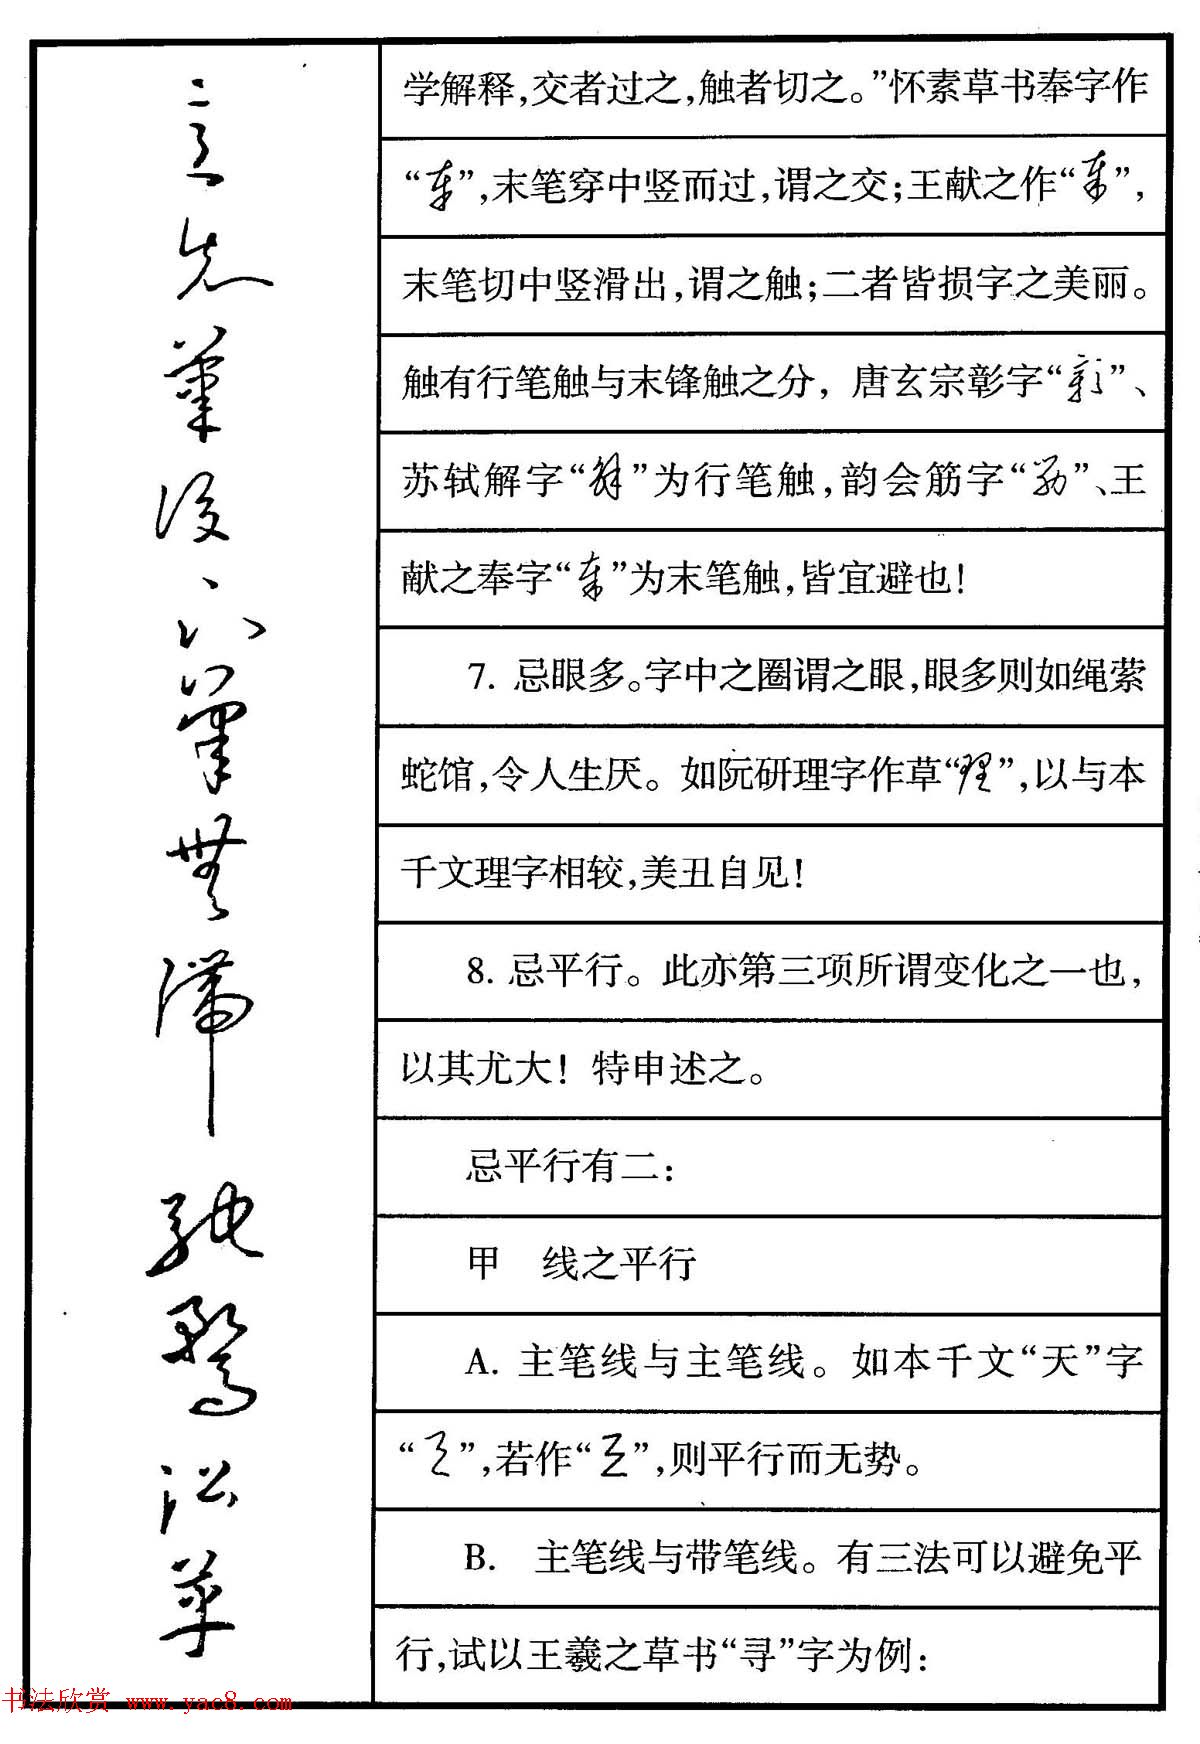 意先筆後下筆無滯馳騖沿革
学解释,交者过之,触者切之。”怀素草书奉字作
“奉”,末笔穿中竖而过,谓之交;王献之作“奉”,
末笔切中竖滑出,谓之触;二者皆损字之美丽。
触有行笔触与末锋触之分,唐玄宗彰字“彰”、
苏轼解字“解”为行笔触,韵会筋字“筋”、王
献之奉字“奉”为末笔触,皆宜避也!
7. 忌眼多。字中之圈谓之眼,眼多则如绳萦
蛇馆,令人生厌。如阮研理字作草“理”,以与本
千文理字相较,美丑自见!
8. 忌平行。此亦第三项所谓变化之一也,
以其尤大!特申述之。
忌平行有二:
甲 线之平行
A. 主笔线与主笔线。如本千文“天”字
“天”,若作“天”,则平行而无势。
B. 主笔线与带笔线。有三法可以避免平
行,试以王羲之草书“寻”字为例:
书法欣赏 www.yac8.com